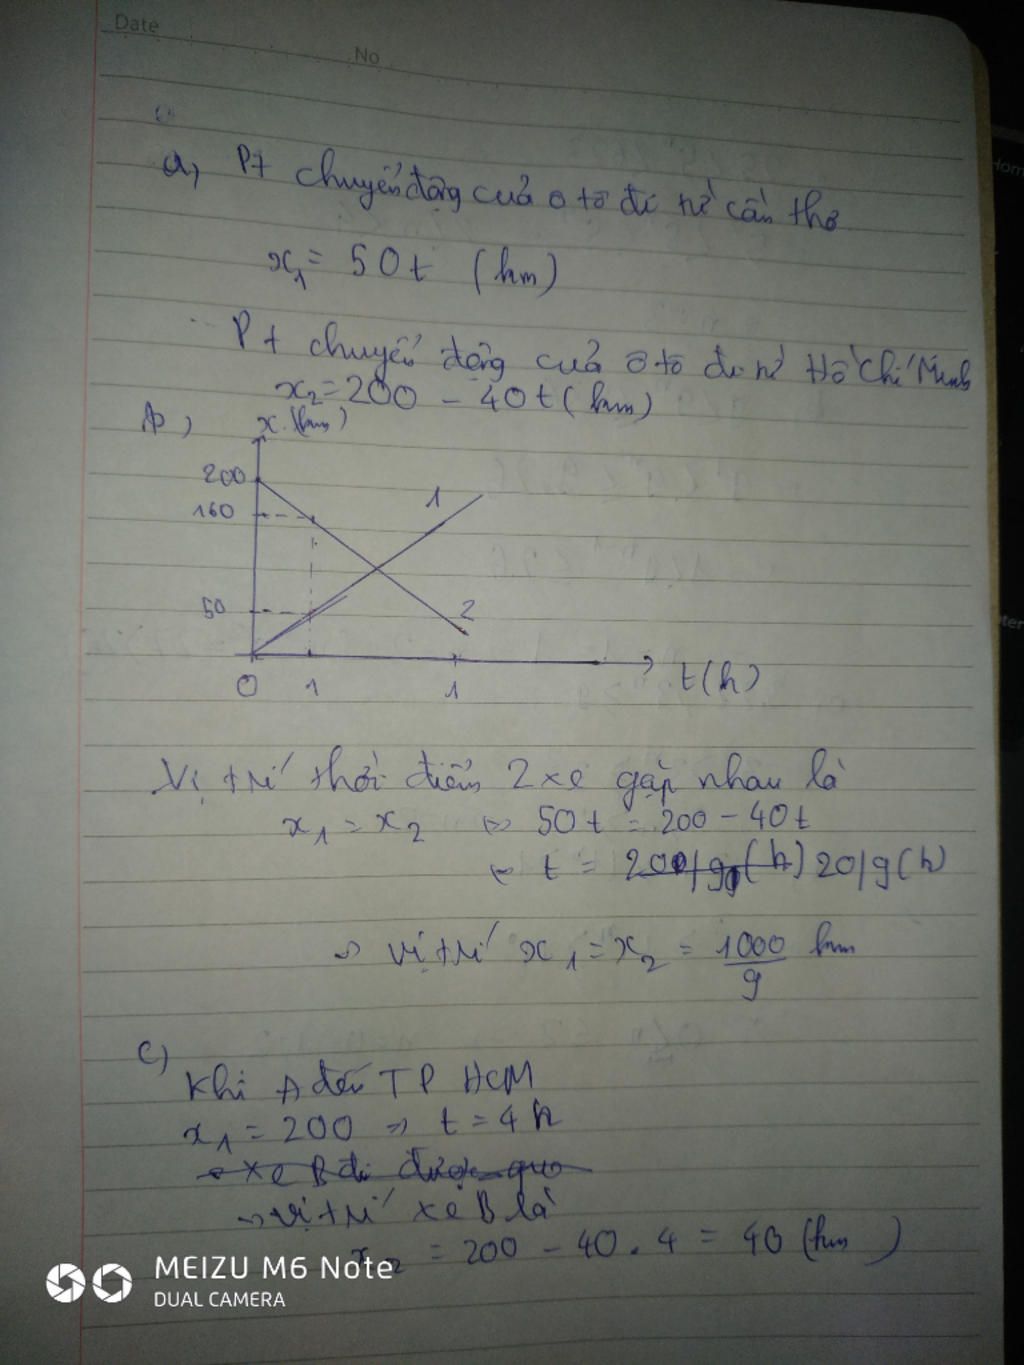 Date
No
a, Pt chuyển động của ô tô đi từ cần thơ
x₁ = 50t (km)
Pt chuyển động của ô tô đi từ Hồ Chí Minh
x₂ = 200 - 40t (km)
b) x (km)
200
160
50
1
2
0 1 1 t(h)
Vị trí thời điểm 2 xe gặp nhau là
x₁ = x₂ ⇔ 50t = 200 - 40t
⇔ t = 200/90 (h) 20/9 (h)
⇒ vị trí x₁ = x₂ = 1000/9 km
c)
Khi A đến TP HCM
x₁ = 200 ⇒ t = 4h
xe B đi được quo
⇒ vị trí xe B là
x₂ = 200 - 40.4 = 40 (km)
MEIZU M6 Note
DUAL CAMERA